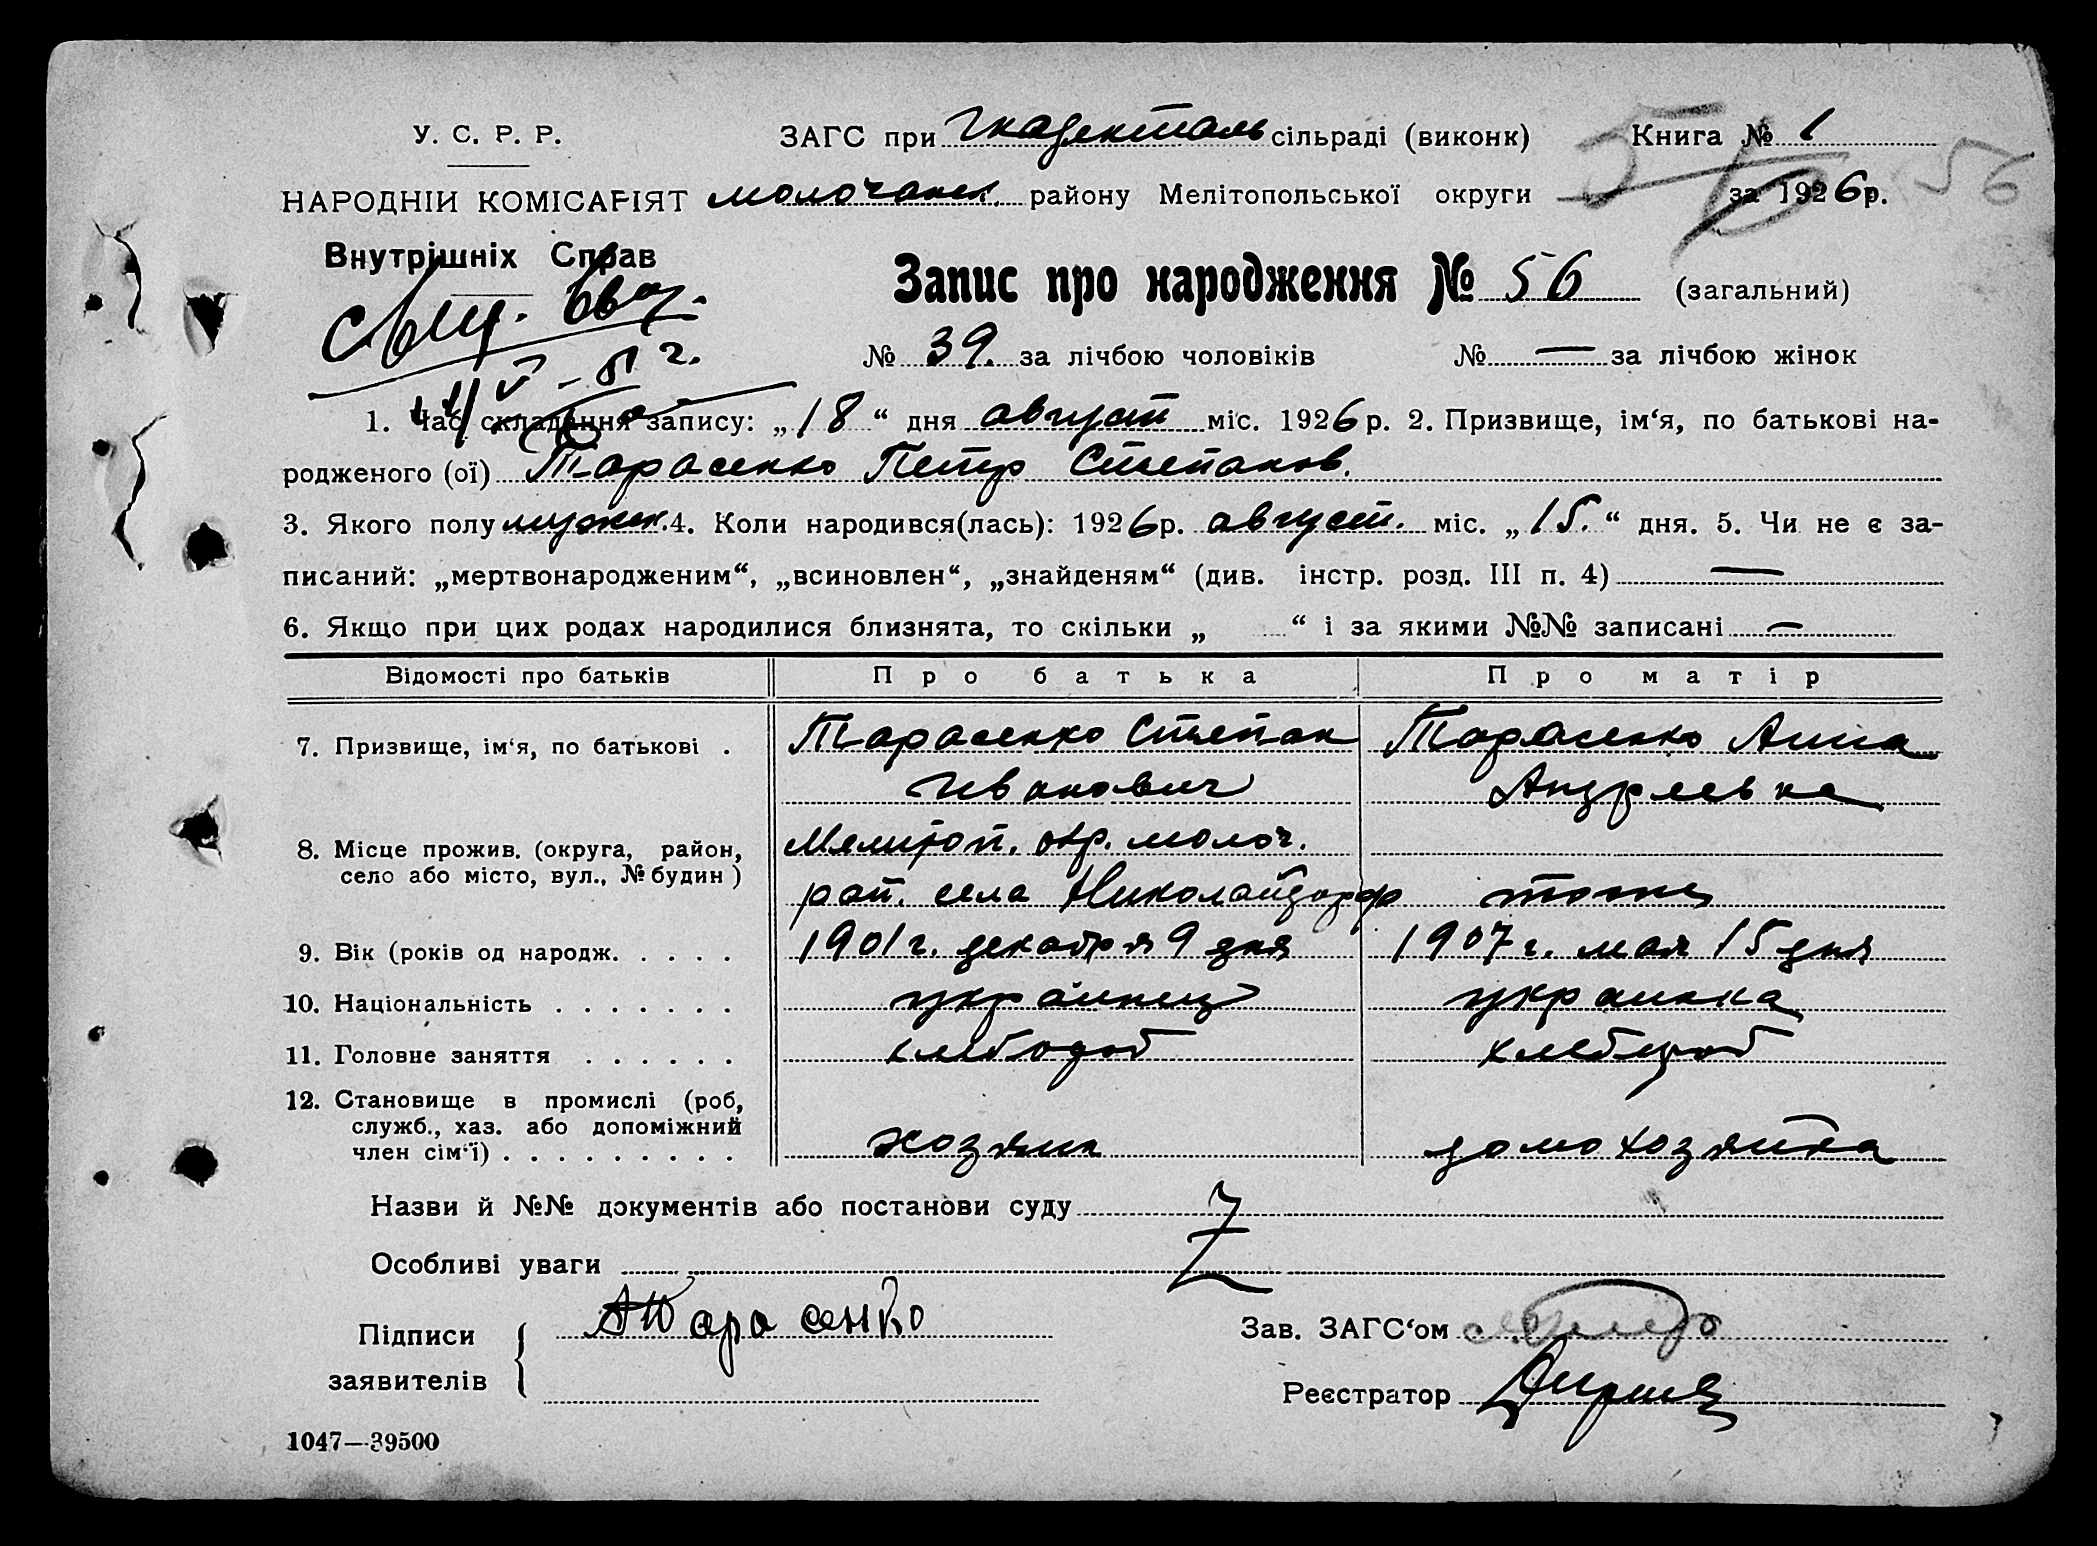 У. С. Р. Р. ЗАГС при Гнаденталь сільраді (виконк) Книга № 1
НАРОДНІЙ КОМІСАРІЯТ Молочанск. району Мелітопольської округи за 1926 р. 56
Внутрішніх Справ
Запис про народження № 56 (загальний)
№ 39. за лічбою чоловіків № — за лічбою жінок
1. Час складання запису: „18“ дня август міс. 1926 р. 2. Призвище, ім‘я, по батькові на-
родженого (ої) Тарасенко Петр Степанов.
3. Якого полу мужск. 4. Коли народився(лась): 1926 р. август. міс. „15.“ дня. 5. Чи не є за-
писаний: „мертвонародженим“, „всиновлен“, „знайденям“ (див. інстр. розд. III п. 4) —
6. Якщо при цих родах народилися близнята, то скільки „ “ і за якими №№ записані —
Відомості про батьків Про батька Про матір
7. Призвище, ім‘я, по батькові . Тарасенко Степан Тарасенко Анна
Иванович Андреевна
8. Місце прожив. (округа, район, Мелитоп. окр. молоч.
село або місто, вул., № будин) рай. села Николайдорф тоже
9. Вік (років од народж. . . . . 1901 г. декабря 9 дня 1907 г. мая 15 дня
10. Національність . . . . . . . украинец украинка
11. Головне заняття . . . . . . хлебороб хлебороб
12. Становище в промислі (роб,
служб., хаз. або допоміжний
член сім‘ї) . . . . . . . . . хозяин домохозяйка
Назви й №№ документів або постанови суду
Особливі уваги
Підписи Тарасенко Зав. ЗАГС‘ом
заявителів Реєстратор
1047—39500